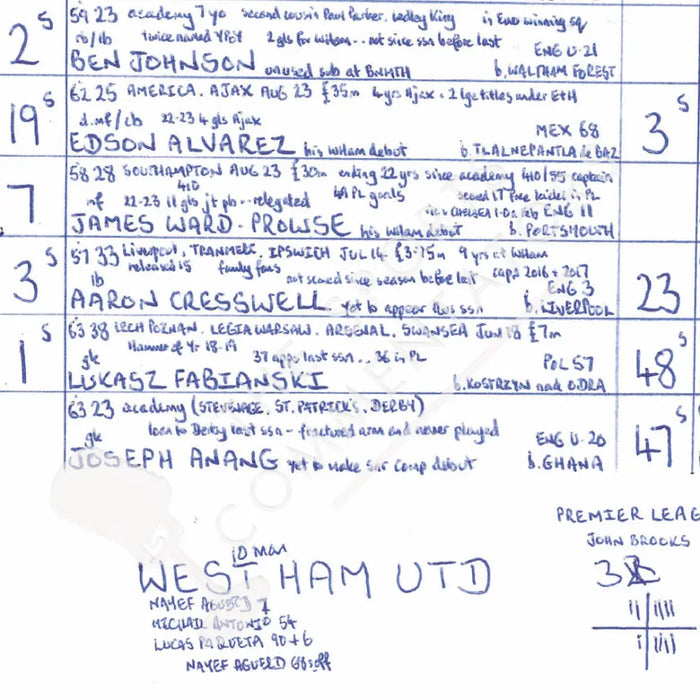 2 S
59 23 academy 7 yo second cousin Paul Parker. Ledley King in Euro winning sq
rb/lb twice named YPOY 2 gls for W Ham.. not since ssn before last ENG U-21
BEN JOHNSON unused sub at BNMTH b. WALTHAM FOREST
19 S
62 25 AMERICA. AJAX AUG 23 £35m 4 yrs Ajax. 2 lge titles under EtH
d.mf/cb 22-23 4 gls Ajax MEX 68
EDSON ALVAREZ his W Ham debut b. TLALNEPANTLA de BAZ
3 S
7
58 28 SOUTHAMPTON AUG 23 £30m ending 22 yrs since academy 410/55 captain
mf 22-23 11 gls jt pb.. relegated 49 PL goals scored 17 free kicks in PL
ENG 11
JAMES WARD-PROWSE his W Ham debut b. PORTSMOUTH
3 S
57 33 Liverpool, TRANMERE, IPSWICH JUL 14 £3.75m 9 yrs at W Ham
released 15 family fans not scored since season before last caps 2016 + 2017
lb ENG 3
AARON CRESSWELL yet to appear this ssn b. LIVERPOOL
23
1 S
63 38 LECH POZNAN. LEGIA WARSAW. ARSENAL. SWANSEA JUN 18 £7m
Hammer of Yr 18-19
gk 37 apps last ssn... 36 in PL POL 57
LUKASZ FABIANSKI b. KOSTRZYN nad ODRA
48 S
63 23 academy (STEVENAGE, ST. PATRICK'S, DERBY)
gk loan to Derby last ssn - fractured arm and never played ENG U-20
JOSEPH ANANG yet to make snr comp debut b. GHANA
47 S
PREMIER LEAG
JOHN BROOKS
10 MAN
WEST HAM UTD
3
NAYEF AGUERD 7
MICHAIL ANTONIO 54
LUCAS PAQUETA 90+6
NAYEF AGUERD 68 s.off
COMMENTA